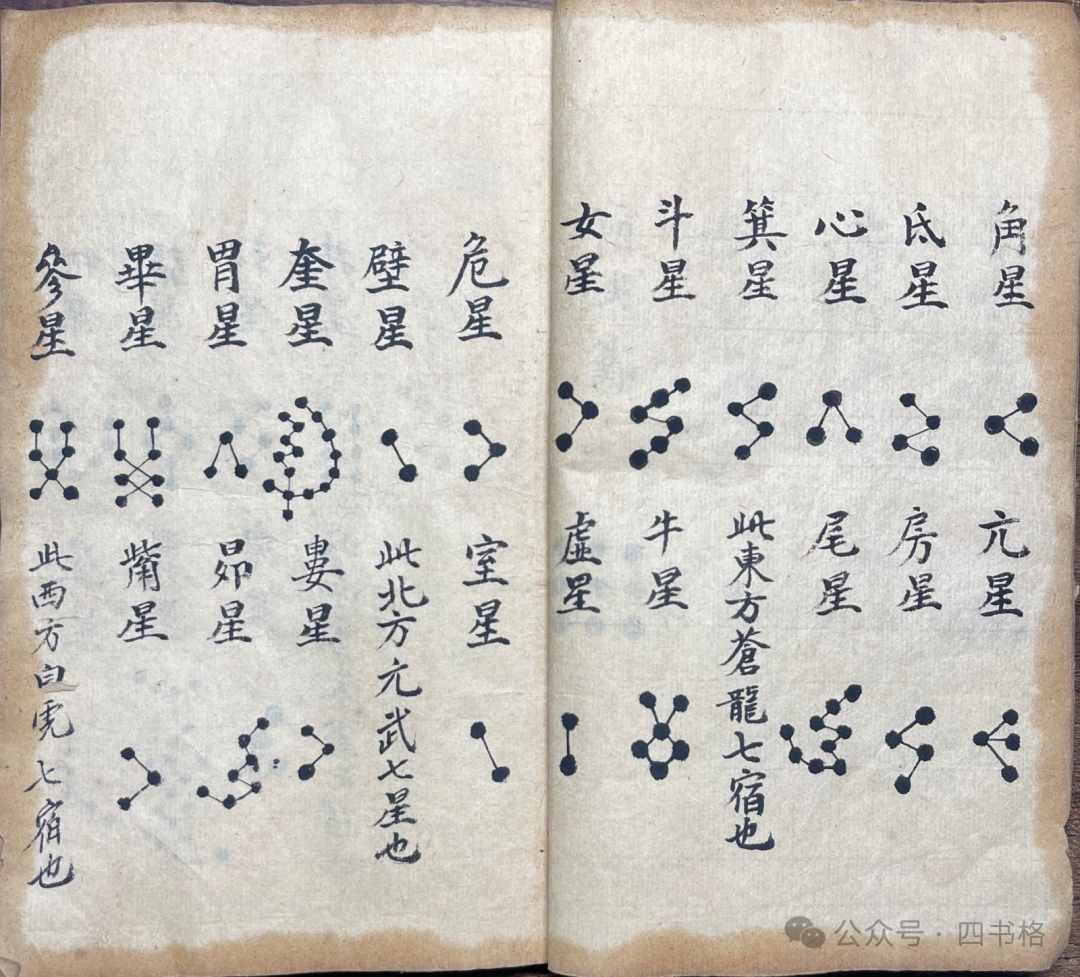 角星
亢星
氐星
房星
心星
尾星
箕星
此東方蒼龍七宿也
斗星
牛星
女星
虛星
危星
室星
壁星
此北方元武七星也
奎星
婁星
胃星
昴星
畢星
觜星
參星
此西方白虎七宿也
公众号·四书格